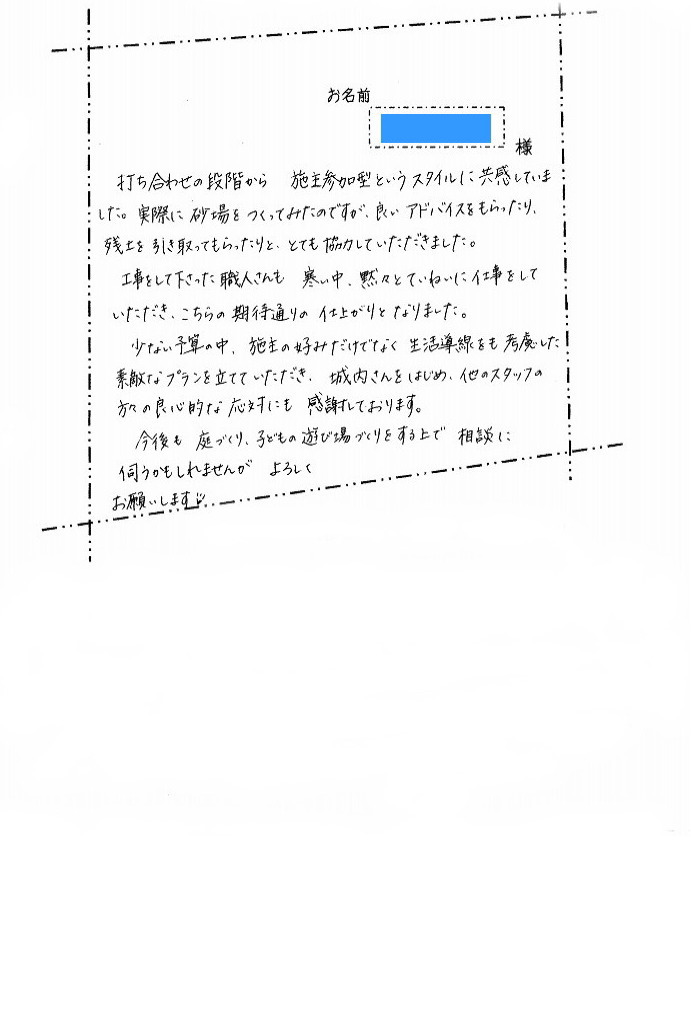 お名前
様
打ち合わせの段階から 施主参加型というスタイルに共感していま
した。実際に砂場をつくってみたのですが、良いアドバイスをもらったり、
残土を引き取ってもらったりと、とても協力していただきました。
工事をして下さった職人さんも 寒い中、黙々とていねいに仕事をして
いただき、こちらの期待通りの仕上がりとなりました。
少ない予算の中、施主の好みだけでなく生活導線をも考慮した
素敵なプランを立てていただき、城内さんをはじめ、他のスタッフの
方々の良心的な応対にも 感謝しております。
今後も 庭づくり、子どもの遊び場づくりをする上で 相談に
伺うかもしれませんが よろしく
お願いします